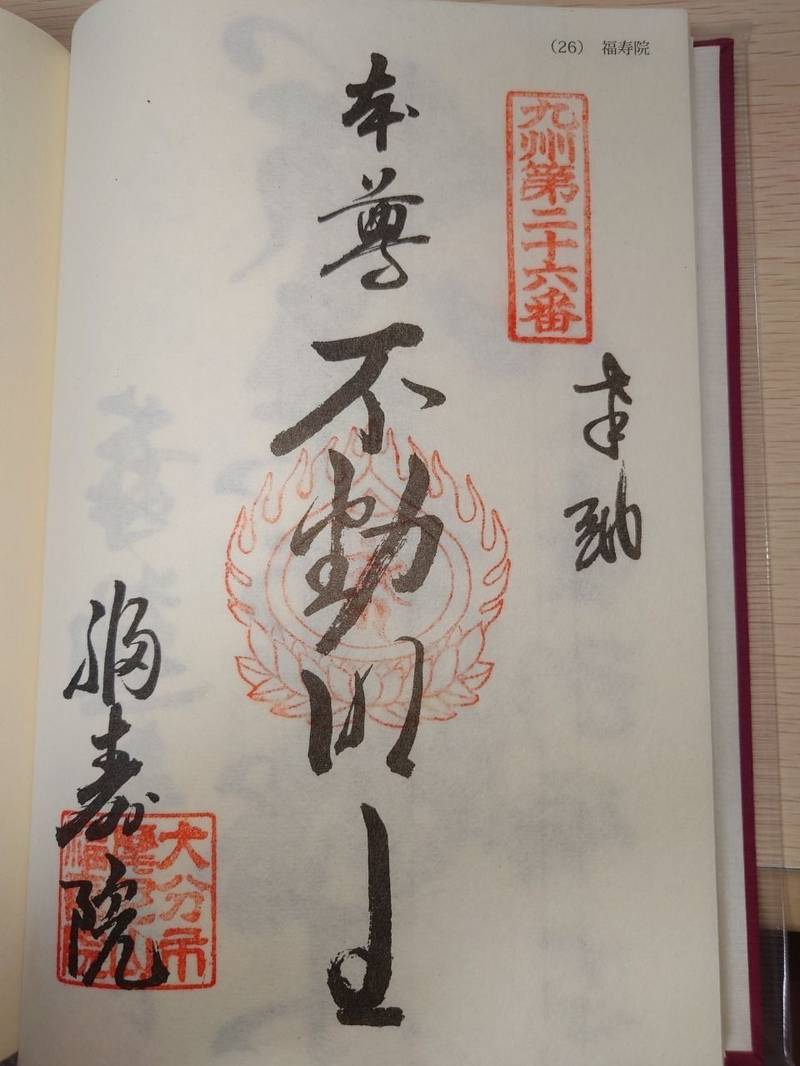 （26）　福寿院
九州第二十六番
奉納
本尊不動明王
福寿院
大分市